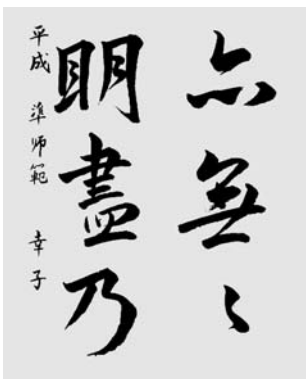 亦無〻
明盡乃
平成 準師範 幸子